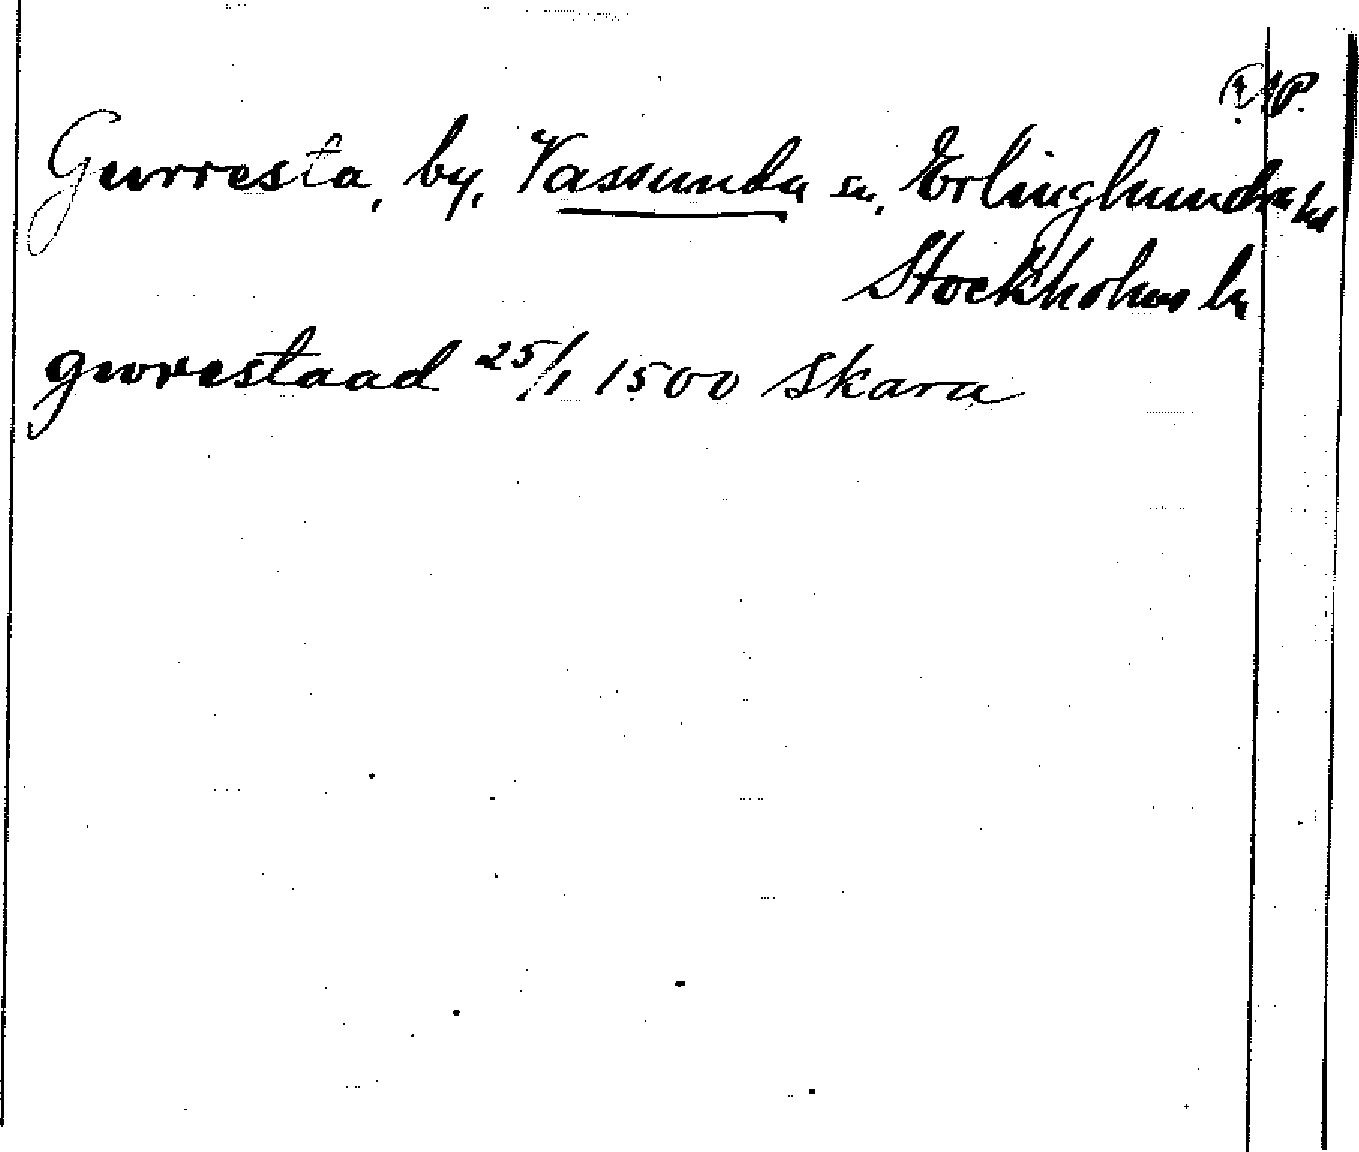 Gurresta, by, Vassunda sn, Erlinghundra hd
Stockholms ln
gworestaad 25/1 1500 Skara